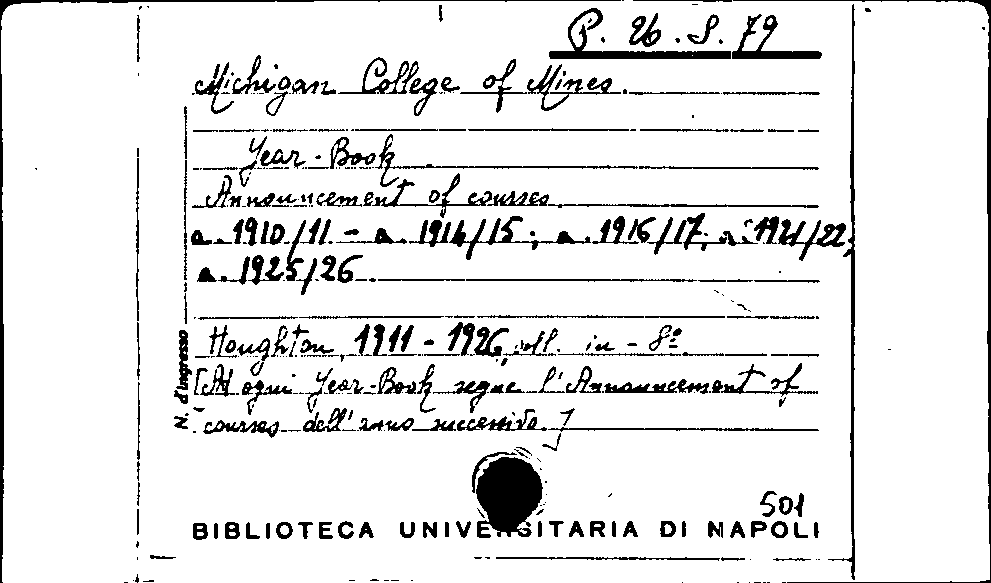 P. 26. S. 79
Michigan College of Mines.
Year-Book.
Announcement of courses.
a. 1910/11 - a. 1914/15; a. 1916/17; a. 1921/22;
a. 1925/26.
Houghton, 1911 - 1926, voll. in - 8º.
[Ad ogni Year-Book segue l'Announcement of
courses dell'anno successivo.]
N. d'ingresso
501
BIBLIOTECA UNIVERSITARIA DI NAPOLI